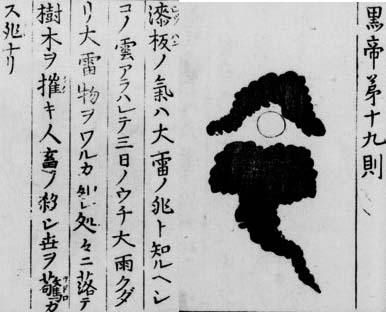 黒帝第十九則
漆板ノ氣ハ大雷ノ兆ト知ルヘシ
コノ雲アラハレテ三日ノウチ大雨クダ
リ大雷物ヲワルカ如レ処々ニ落テ
樹木ヲ摧キ人畜ヲ殺シ世ヲ驚カ
ス兆ナリ